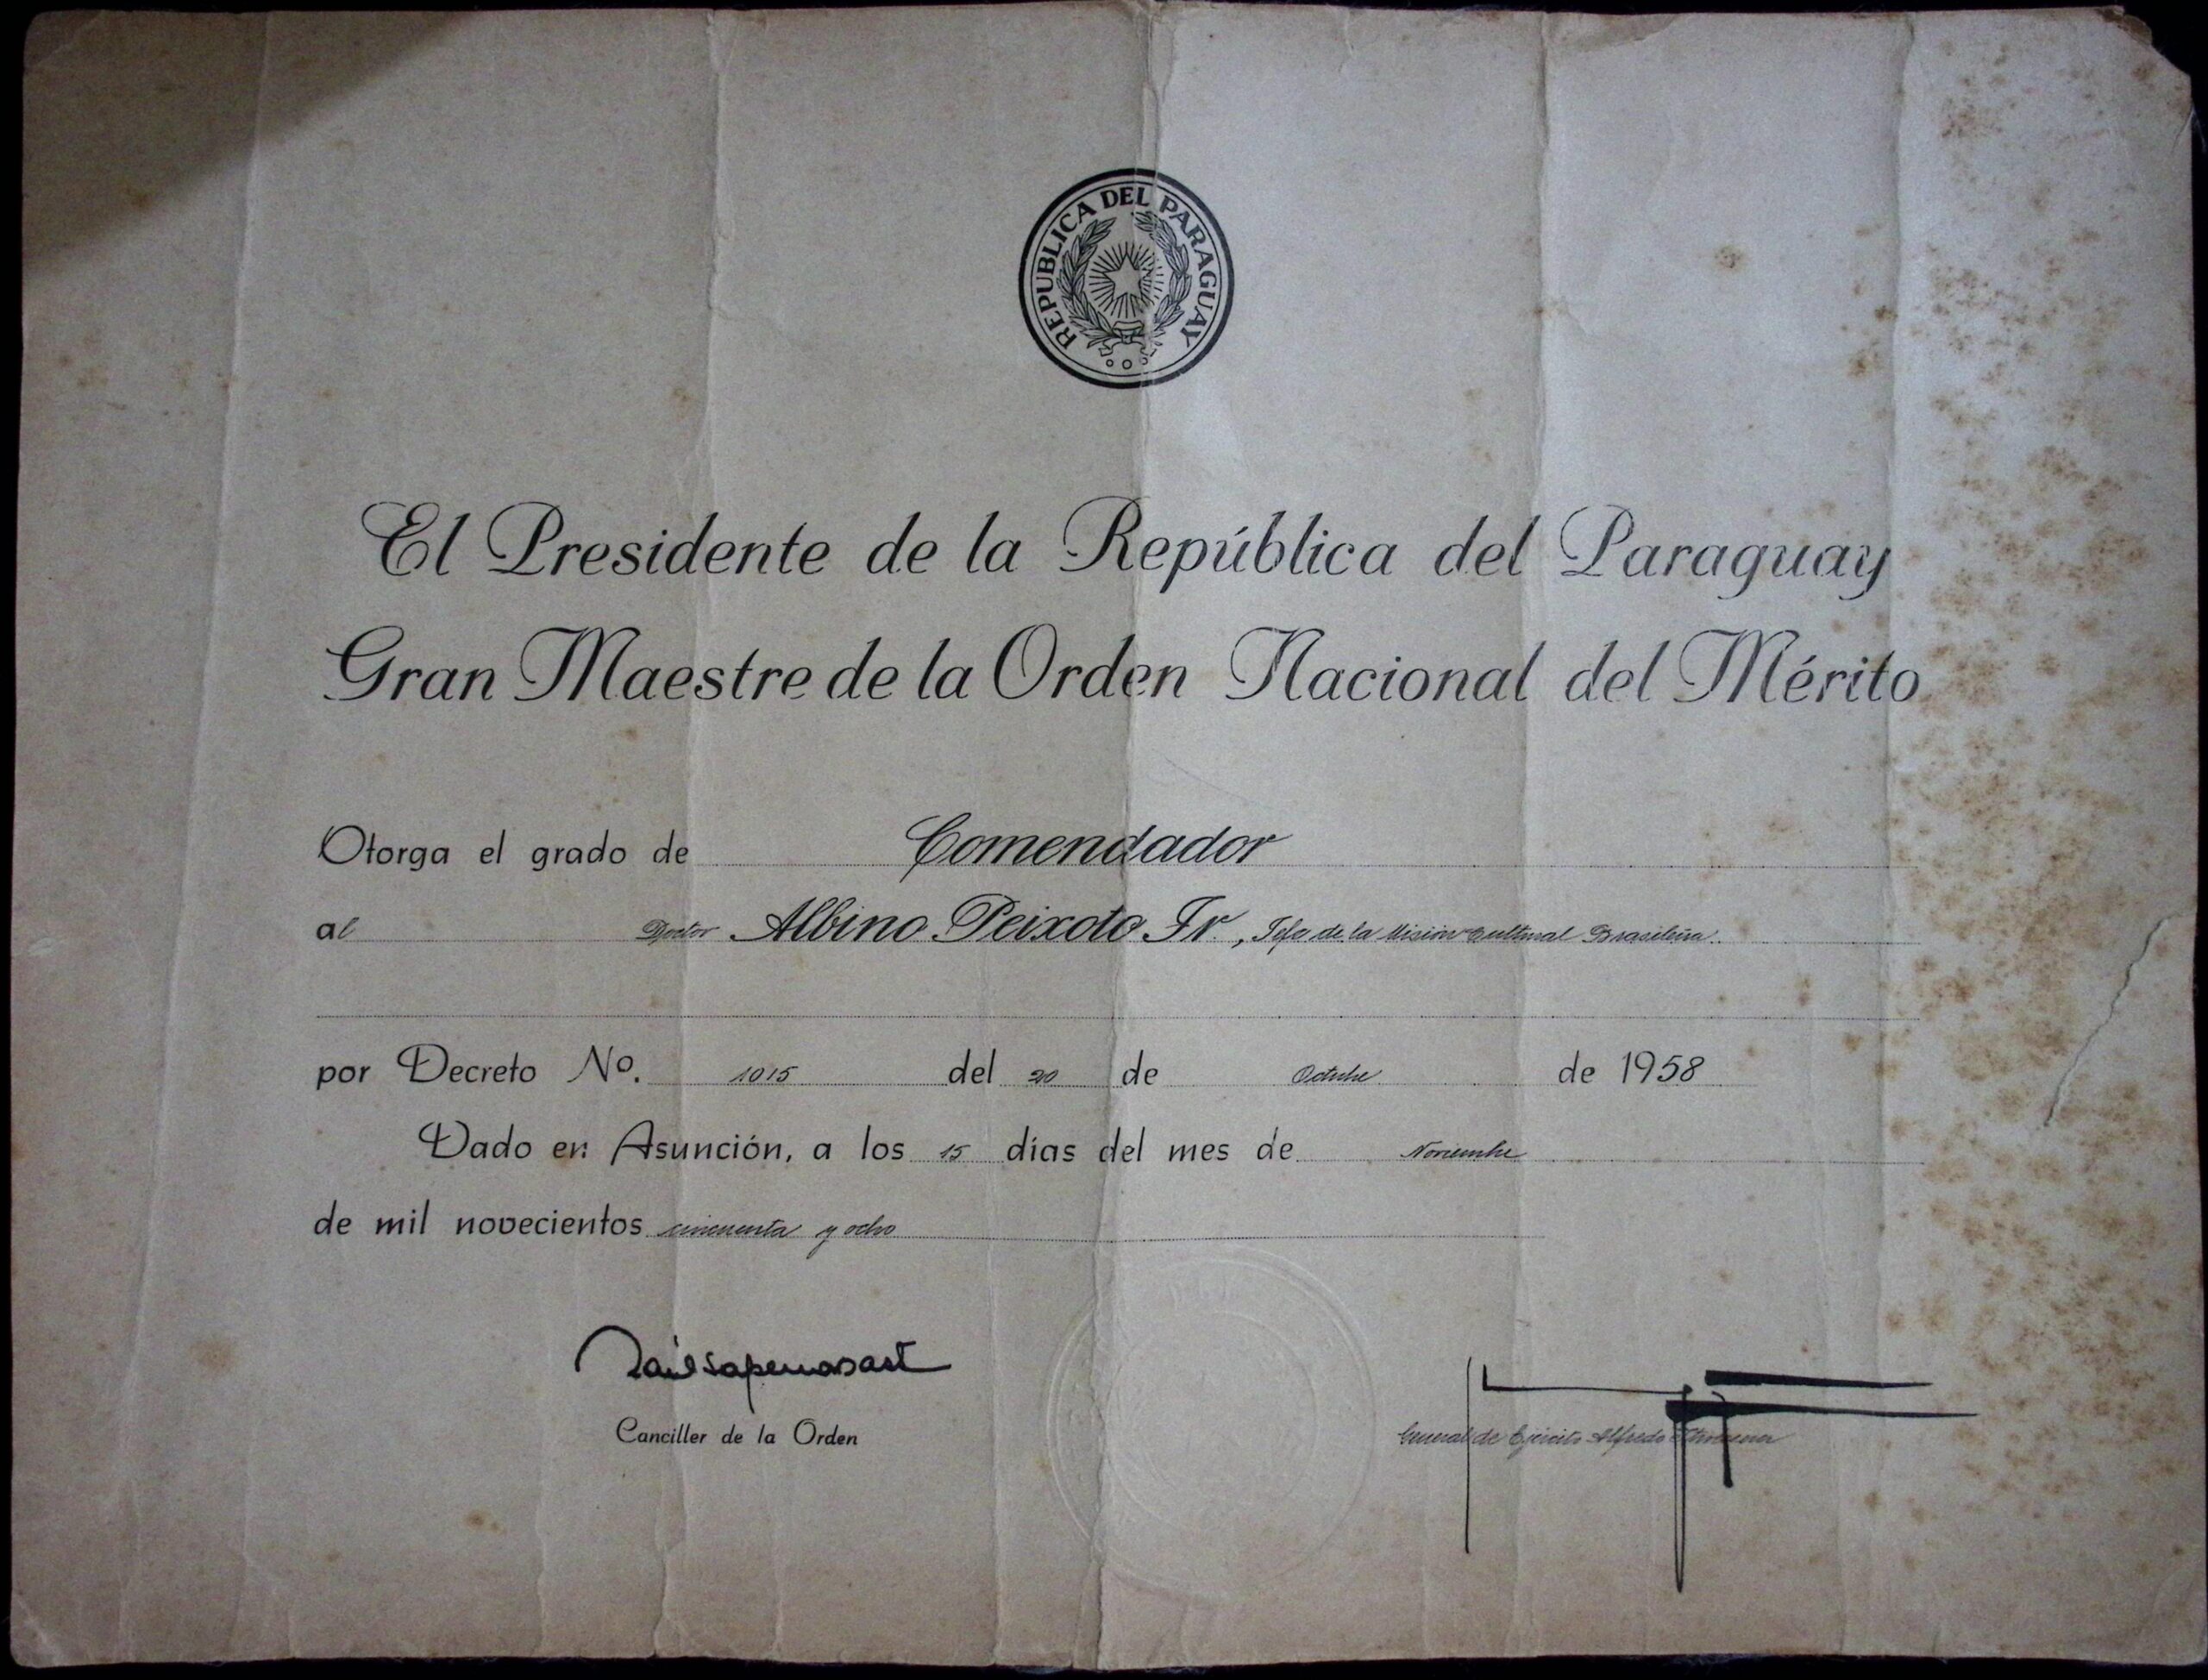 REPUBLICA DEL PARAGUAY
El Presidente de la República del Paraguay
Gran Maestre de la Orden Nacional del Mérito
Otorga el grado de Comendador
al Doctor Albino Peixoto Jr., Jefe de la Misión Cultural Brasileña.
por Decreto Nº. 1015 del 20 de Octubre de 1958
Dado en Asunción, a los 15 días del mes de Noviembre
de mil novecientos cincuenta y ocho
Canciller de la Orden
General de Ejército Alfredo Stroessner